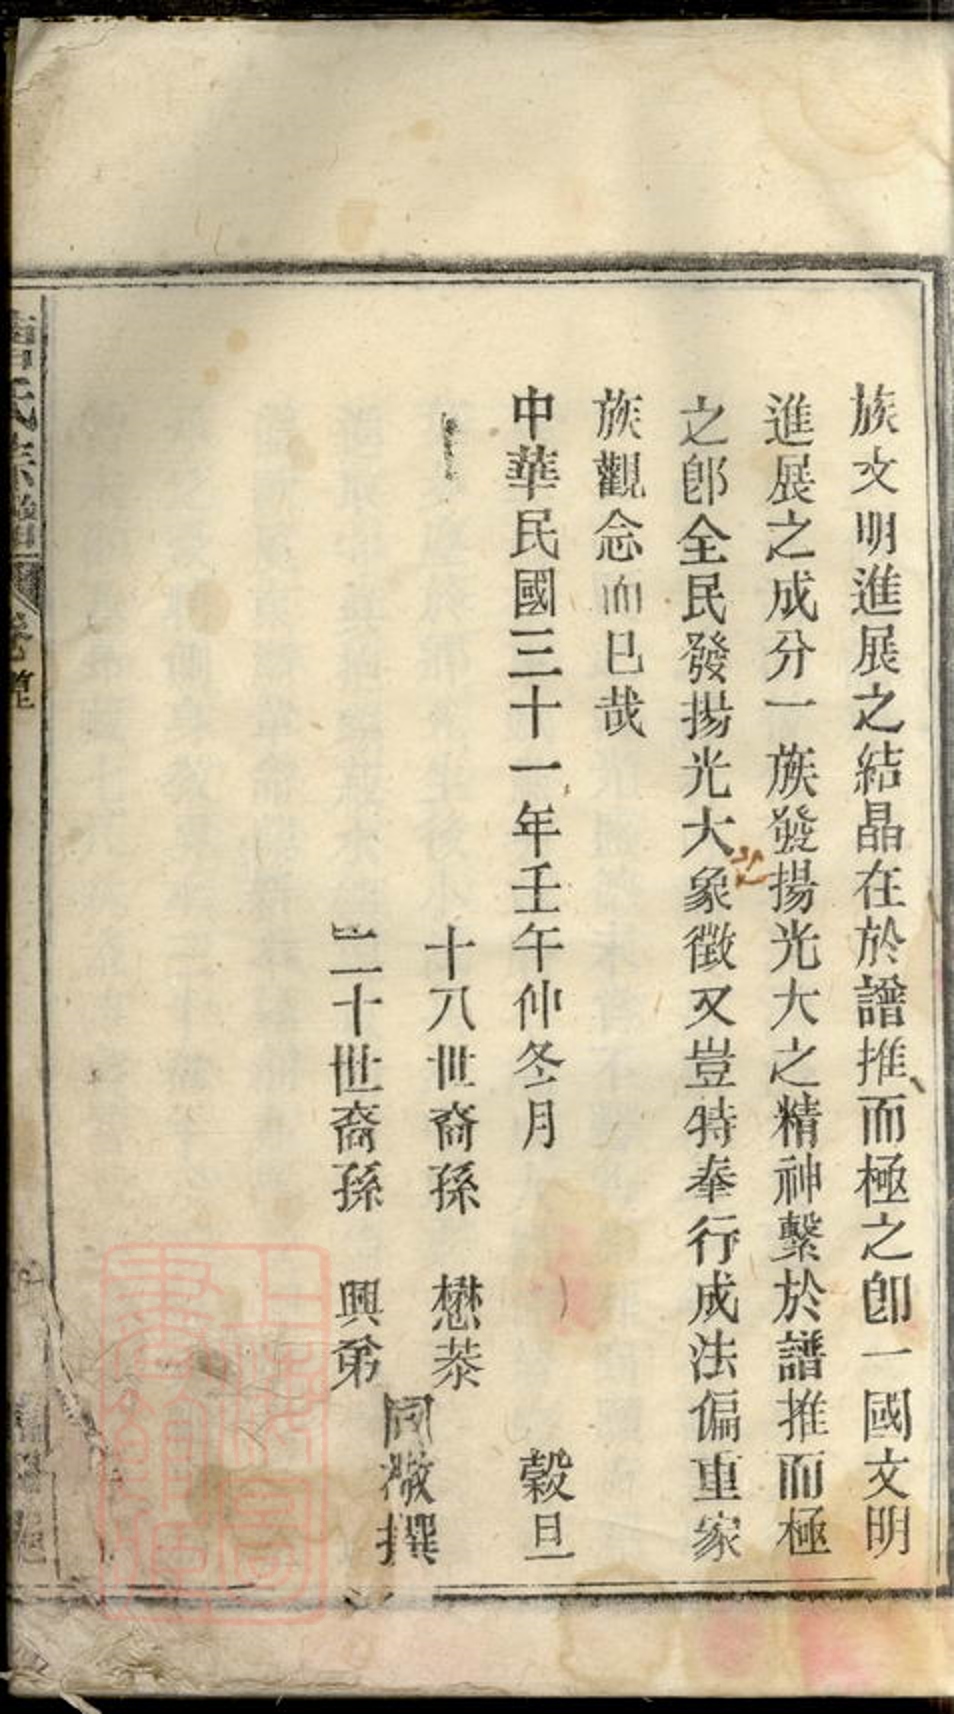 族文明進展之結晶在於譜推而極之卽一國文明
進展之成分一族發揚光大之精神繫於譜推而極
之卽全民發揚光大象徵又豈特奉行成法偏重家
之
族觀念而已哉
中華民國三十一年壬午仲冬月 穀旦
十八世裔孫 懋恭
二十世裔孫 興弟
同敬撰
氏宗譜 卷首
上海圖書館藏